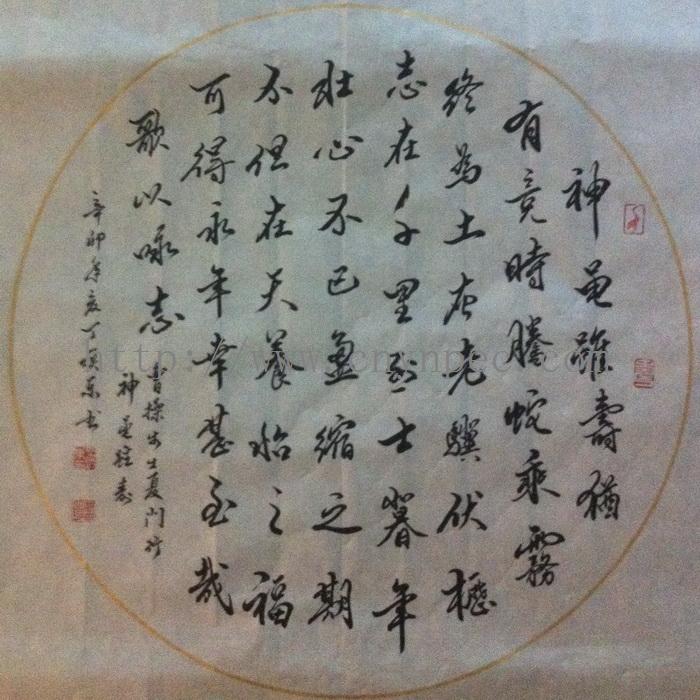 神龟雖壽猶
有竟時騰蛇乘霧
終為土灰老驥伏櫪
志在千里烈士暮年
壯心不已盈縮之期
不但在天養怡之福
可得永年幸甚至哉
歌以咏志
曹操步出夏門行
神龟雖壽
辛卯年夏丁东书